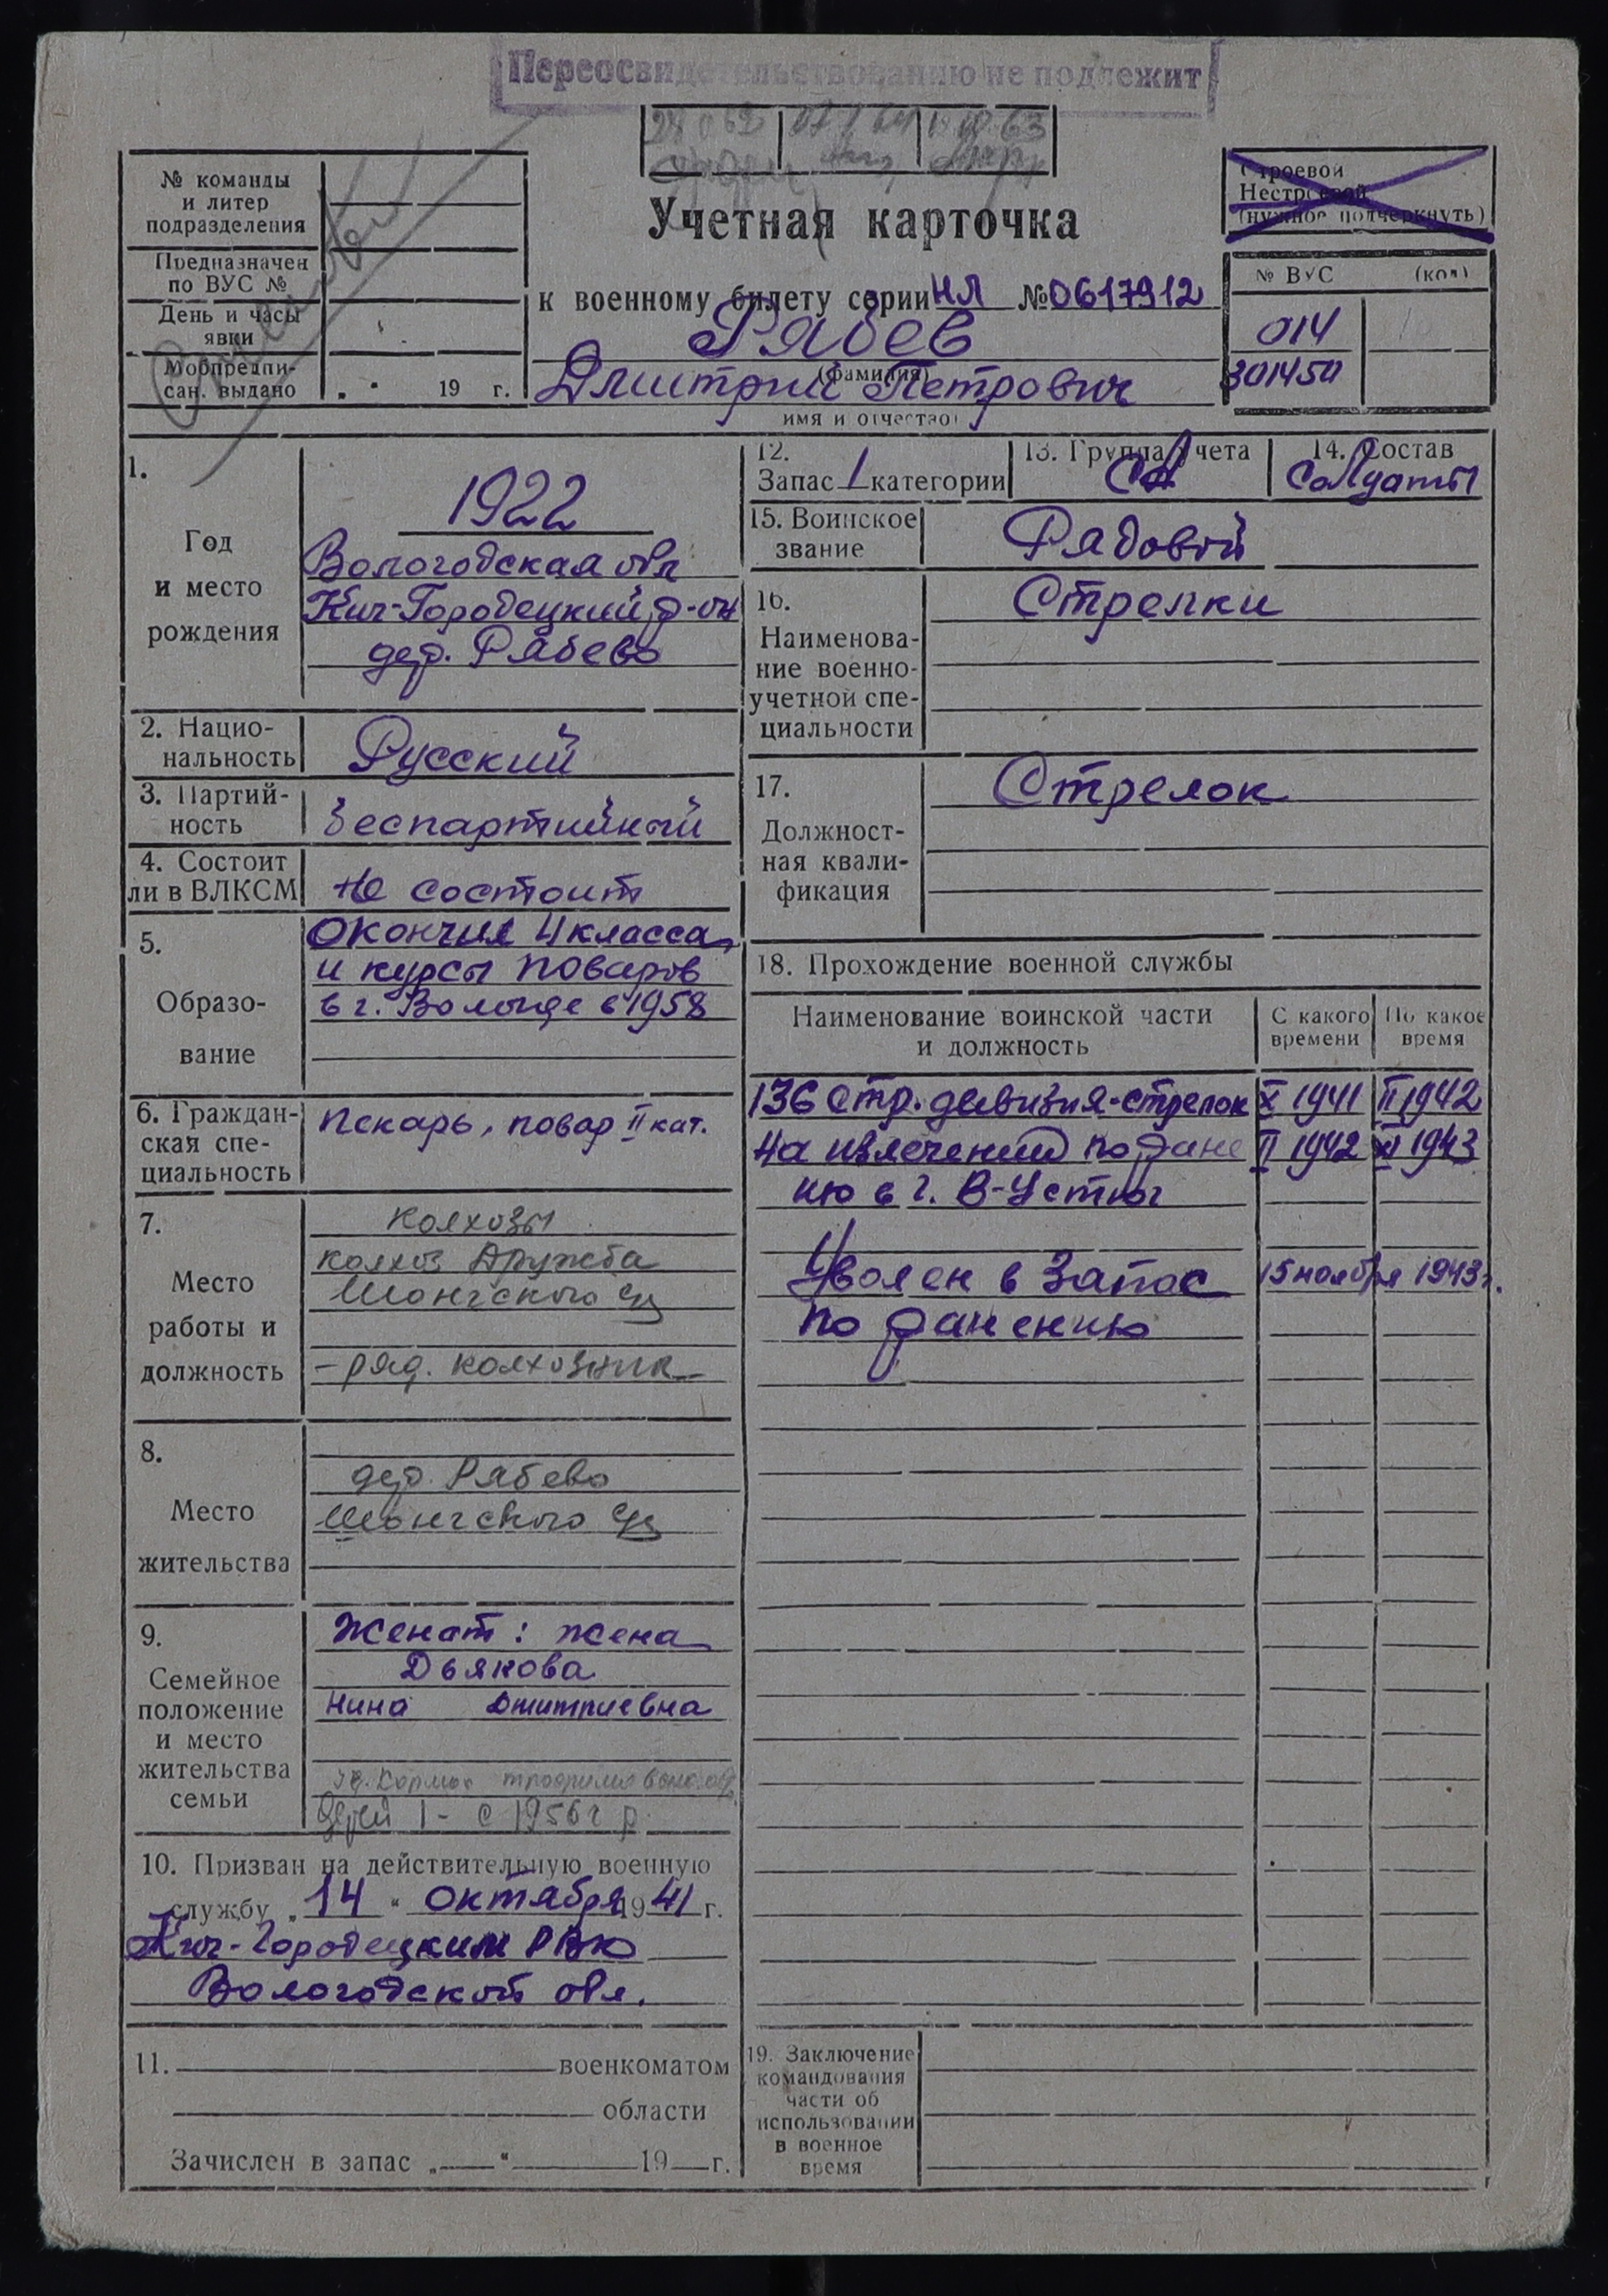 Переосвидетельствованию не подлежит
Учетная карточка
№ команды
и литер
подразделения
Предназначен
по ВУС №
День и часы
явки
Мобпредпи-
сан. выдано „ " 19 г.
к военному билету серии НЛ № 0617912
Рябев
(фамилия)
Дмитрий Петрович
имя и отчество)
Строевой
Нестроевой
(нужное подчеркнуть)
№ ВУС (код)
014
301450
1.
Год
и место
рождения
1922
Вологодская обл
Кич-Городецкий р-он
дер. Рябево
2. Нацио-
нальность
Русский
3. Партий-
ность
беспартийный
4. Состоит
ли в ВЛКСМ
не состоит
5.
Образо-
вание
окончил 4 класса
и курсы поваров
в г. Вологде в 1958
6. Граждан-
ская спе-
циальность
пекарь, повар II кат.
7.
Место
работы и
должность
колхозы
колхоз Дружба
Шонгского
– ряд. колхозник
8.
Место
жительства
дер. Рябево
Шонгского
9.
Семейное
положение
и место
жительства
семьи
Женат: жена
Дьякова
Нина Дмитриевна
детей 1 - с 1956 г р.
10. Призван на действительную военную
службу „ 14 " октября 1941 г.
Кич-Городецким РВК
Вологодской обл.
11. военкоматом
области
Зачислен в запас „ " 19 г.
12.
Запас 1 категории
13. Группа учета
СА
14. Состав
Солдаты
15. Воинское
звание
Рядовой
16.
Наименова-
ние военно-
учетной спе-
циальности
Стрелки
17.
Должност-
ная квали-
фикация
Стрелок
18. Прохождение военной службы
Наименование воинской части
и должность
С какого
времени
По какое
время
136 стр. дивизия-стрелок X 1941 II 1942
На излечении по ране II 1942 XI 1943
нию в г. В-Устюг
Уволен в запас 15 ноября 1943 г.
по ранению
19. Заключение
командования
части об
использовании
в военное
время